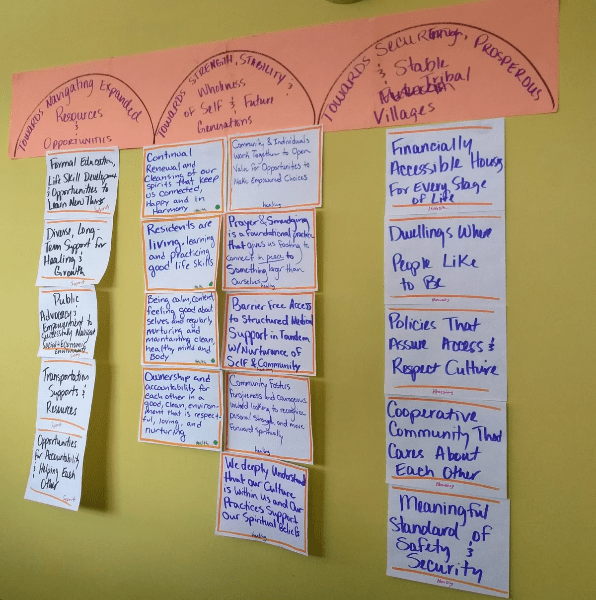 TOWARDS Navigating Expanded
Resources
&
OPPORTUNITIES
TOWARDS STRENGTH, STABILITY &
Wholeness
OF Self & Future
Generations
TOWARDS SECURE, PROSPEROUS
& Stable
Tribal
Villages
Formal Education,
Life Skill Development
& Opportunities to
Learn New Things
Support
Diverse, Long-
Term Support for
Healing &
Growth
Public
Advocacy &
Empowerment to
Successfully Navigate
Environments
Transportation
Supports &
Resources
Support
Opportunities
for Accountability
& Helping Each
Other
Support
Continual
Renewal and
Cleansing of our
spirits that keep
us connected,
Happy and in
Harmony
Health
Residents are
living, learning
and practicing
good life skills
Health
Being calm, content,
feeling good about
selves and regularly
nurturing and
maintaining clean,
healthy mind and
Body
Ownership and
accountability for
each other in a
good, clean, environ-
ment that is respect-
ful, loving, and
nurturing
Health
Community & Individuals
Work Together to Open
Value for Opportunities to
Make Empowered Choices
healing
Prayer & Smudging
is a foundational practice
that gives us footing to
connect in peace to
Something larger than
Ourselves
healing
Barrier Free Access
to Structured Medical
Support in Tandem
w/ Nurturance of
Self & Community
healing
Community Fosters
Forgiveness but courageous
looking to
personal strength, and move
Forward Spiritually
healing
We deeply Understand
that our Culture
is within us and Our
Practices Support
Our Spiritual Beliefs
healing
Financially
Accessible Housing
For Every Stage
of Life
Housing
Dwellings Where
People Like
to Be
Housing
Policies That
Assure Access &
Respect Culture
Housing
Cooperative
Community That
Cares About
Each Other
Housing
Meaningful
Standard of
Safety &
Security
Housing